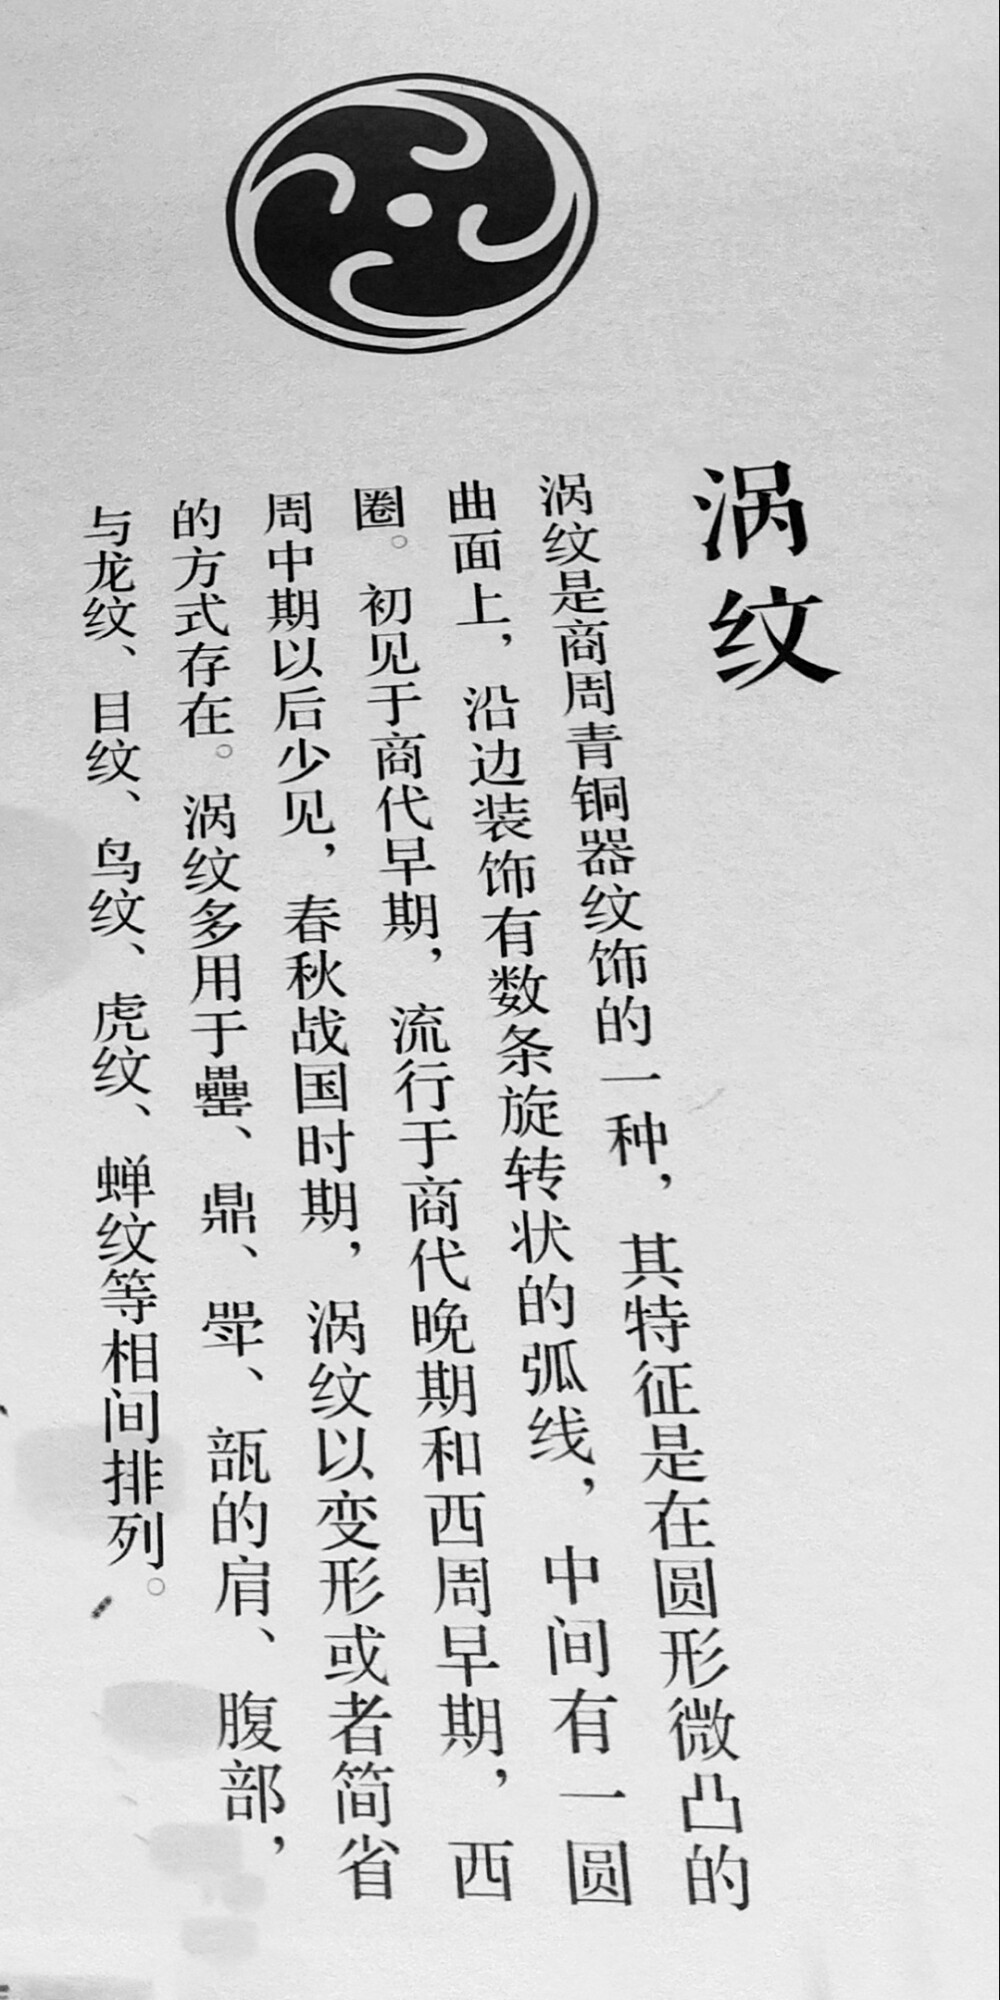 涡纹
涡纹是商周青铜器纹饰的一种，其特征是在圆形微凸的
曲面上，沿边装饰有数条旋转状的弧线，中间有一圆
圈。初见于商代早期，流行于商代晚期和西周早期，西
周中期以后少见，春秋战国时期，涡纹以变形或者简省
的方式存在。涡纹多用于罍、鼎、斝、瓿的肩、腹部，
与龙纹、目纹、鸟纹、虎纹、蝉纹等相间排列。